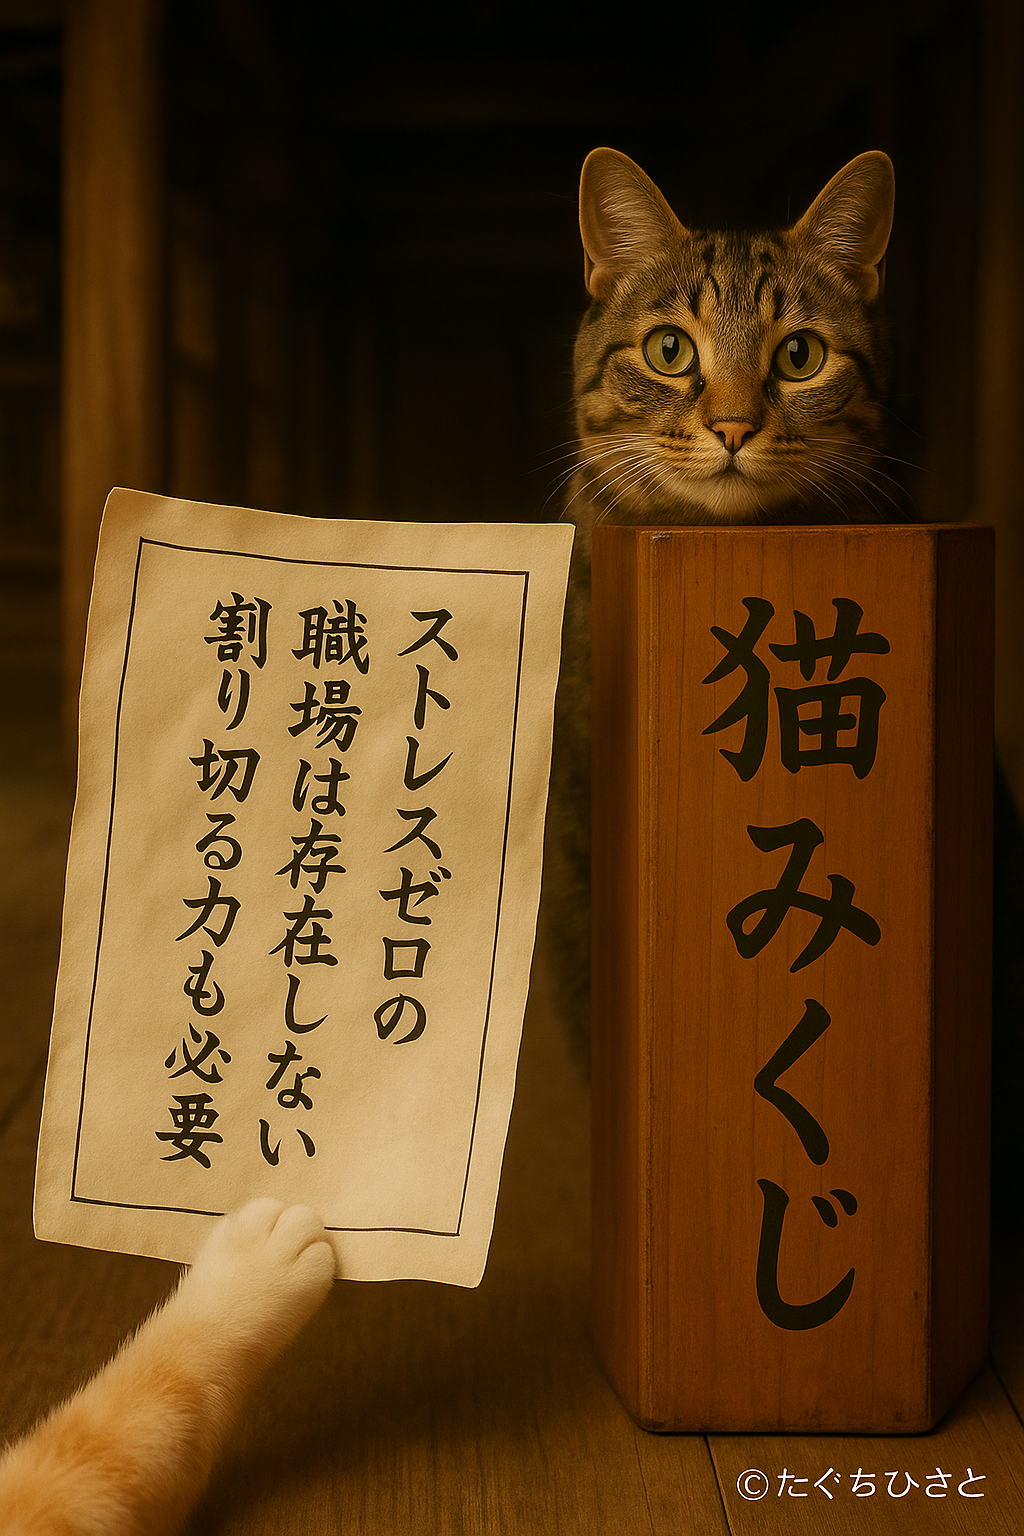 猫みくじ
ストレスゼロの
職場は存在しない
割り切る力も必要
©たぐちひさと